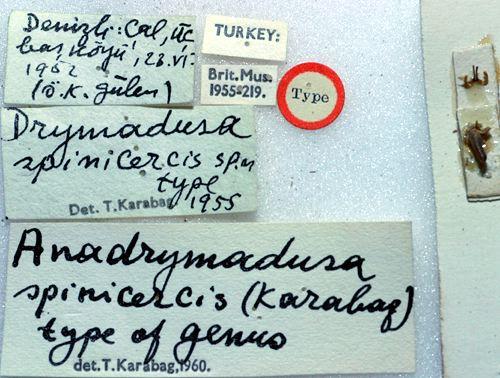 Denizli: Çal, Üc
baş köyü, 23.VI.
1952
(Ö.K. Gülen)
TURKEY:
Brit. Mus.
1955-219.
Type
Drymadusa
spinicercis sp.n
type
1955
Det. T. Karabag
Anadrymadusa
spinicercis (Karabag)
type of genus
det. T. Karabag, 1960.